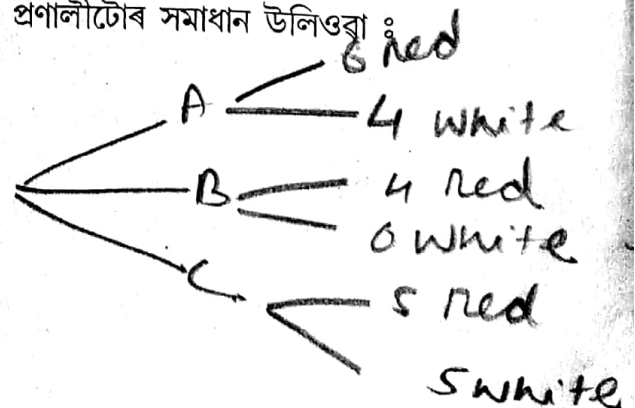 প্ৰণালীটোৰ সমাধান উলিওৱা :
6 red
A
4 white
B
4 red
0 white
C
5 red
5 white